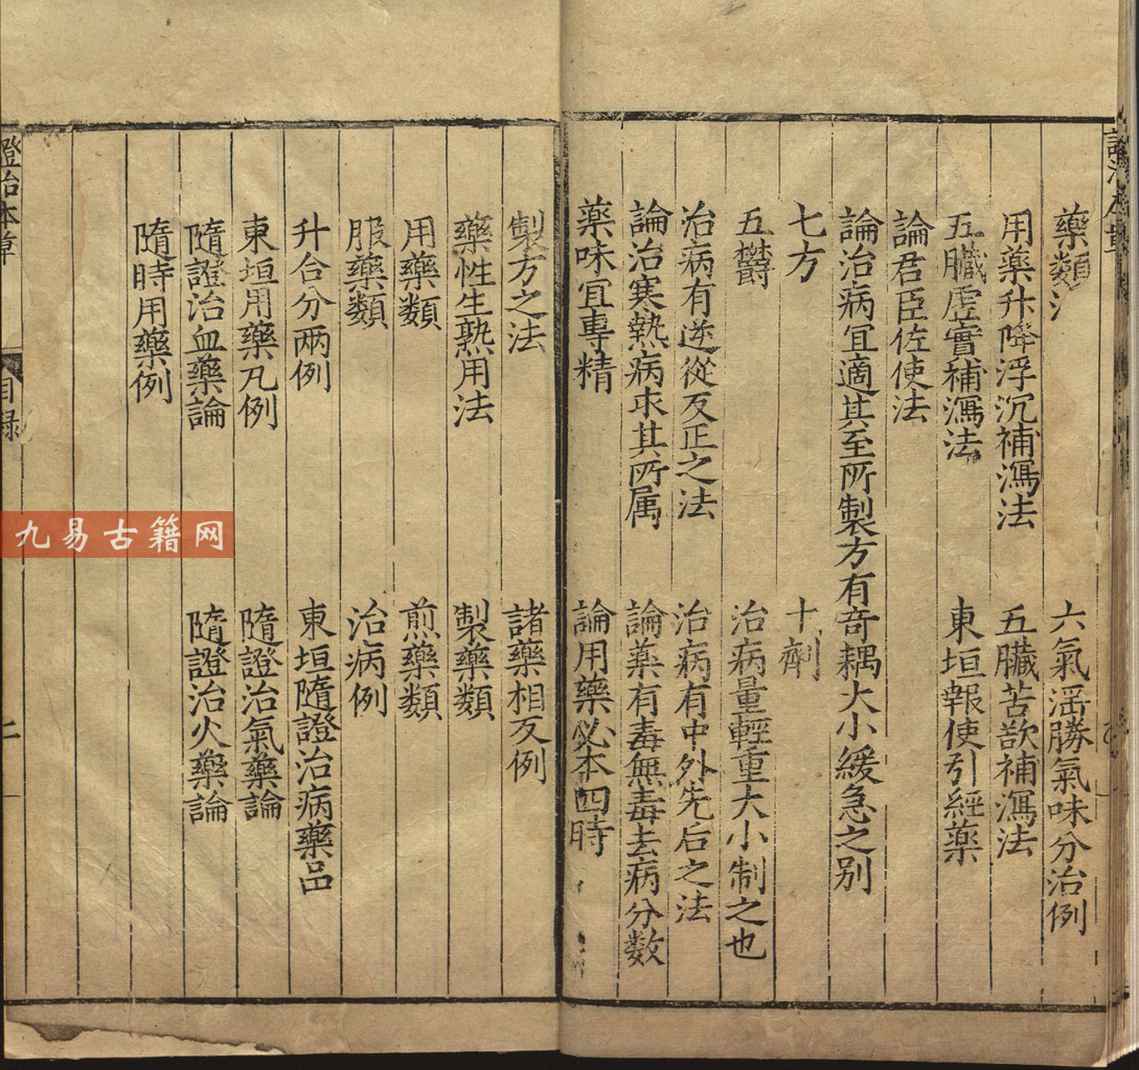 藥類法
六氣淫勝氣味分治例
用藥升降浮沉補瀉法
五臟苦欲補瀉法
五臟虛實補瀉法
東垣報使引經藥
論君臣佐使法
論治病宜適其至所製方有奇耦大小緩急之别
七方
十劑
五欝
治病量輕重大小制之也
治病有逆從反正之法
治病有中外先后之法
論治寒熱病求其所属
論藥有毒無毒去病分数
藥味宜專精
論用藥必本四時
製方之法
諸藥相反例
藥性生熟用法
製藥類
用藥類
煎藥類
服藥類
治病例
升合分兩例
東垣隨證治病藥品
東垣用藥凡例
隨證治氣藥論
隨證治血藥論
隨證治火藥論
隨時用藥例
證治本草
目録
二
九易古籍网